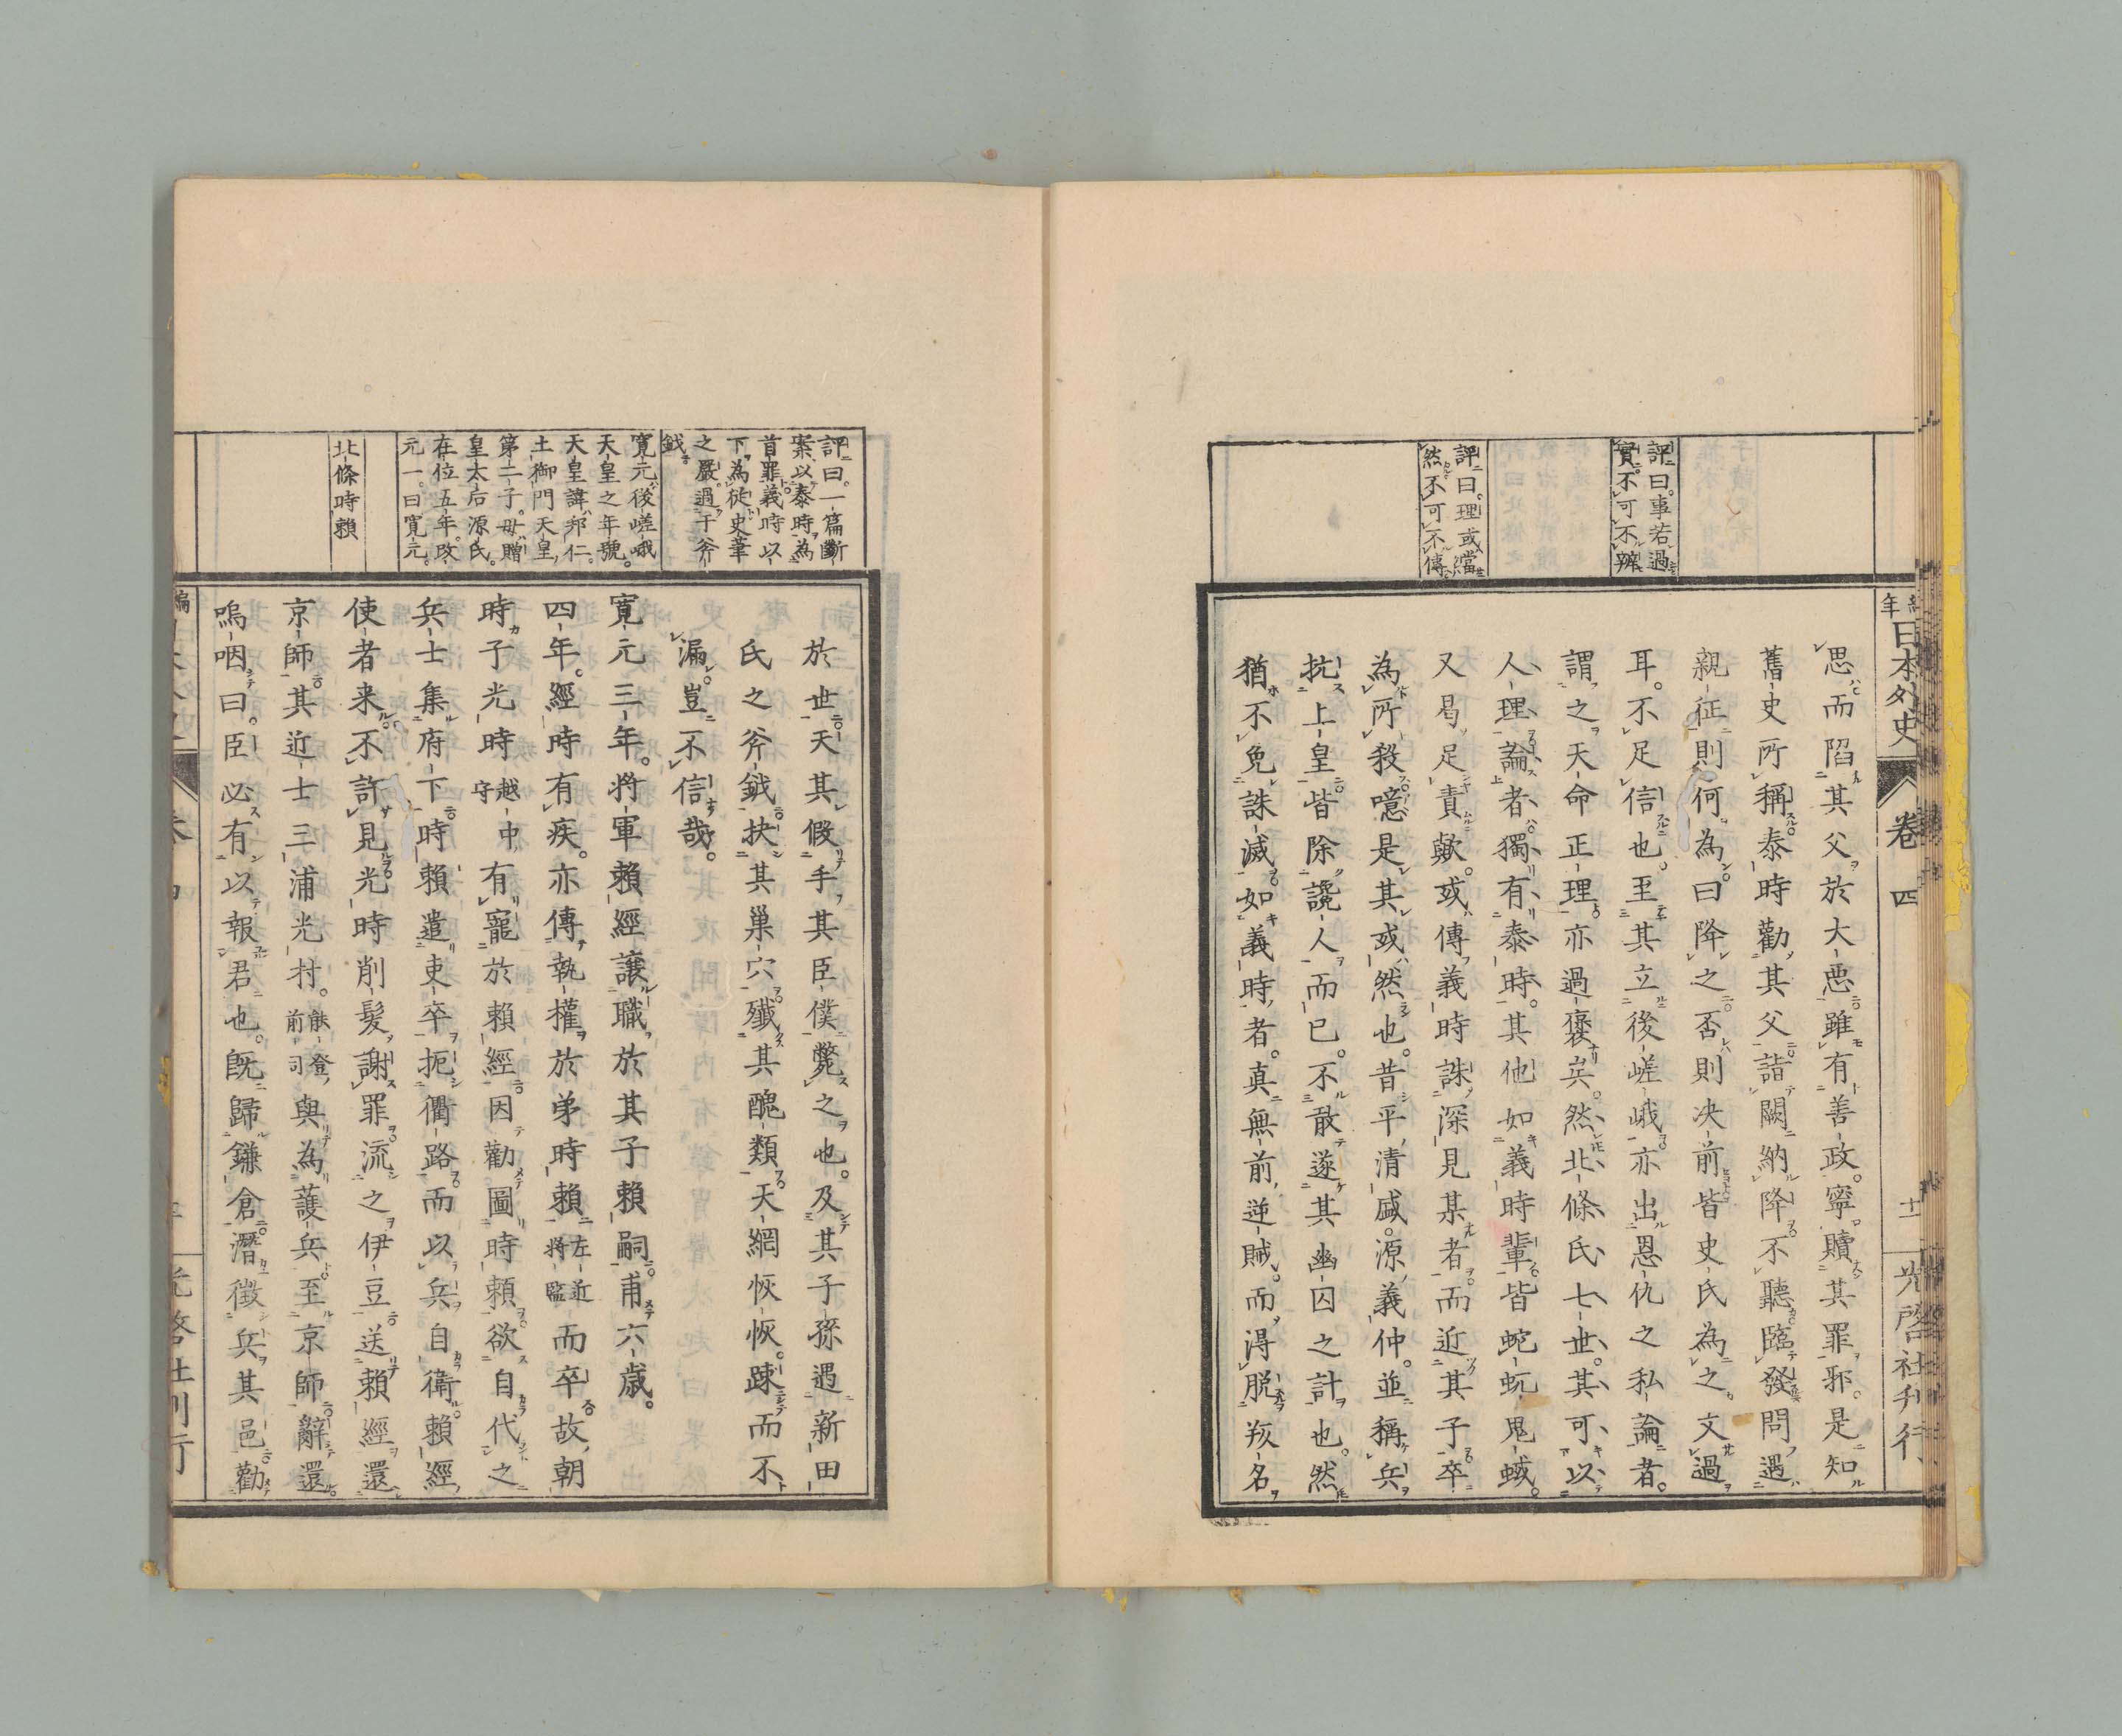 編年日本外史 卷四 十二 光啓社刊行
評曰。事若過
實。不可不辨
評曰。理或當
然。不可不傳
思而陷其父於大惡。雖有善政。寧贖其罪邪。是知
舊史所稱泰時勸其父詣闕納降。不聽。臨發問遇
親征則何為。曰降之。否則决前。皆史氏為之文過
耳。不足信也。至其立後嵯峨。亦出恩仇之私。論者
謂之天命正理。亦過褒矣。然北條氏七世。其可以
人理論者。獨有泰時。其他如義時輩。皆蛇蚖鬼蜮。
又曷足責歟。或傳義時誅深見某者。而近其子卒
為所殺。噫是其或然也。昔平清盛。源義仲。並稱兵
抗上皇。皆除讒人而已。不敢遂其幽囚之計也。然
猶不免誅滅。如義時者。真無前逆賊。而得脱。殄名
評曰。一篇斷
案。以泰時為
首罪。義時以
下為從。史筆
之嚴。過于斧
鉞
寛元後嵯峨
天皇之年號。
天皇諱邦仁。
土御門天皇
第二子。母贈
皇太后源氏。
在位五年。改
元一。曰寛元。
北條時頼
於世。天其假手其臣僕斃之也。及其子孫遇新田
氏之斧鉞。抉其巢穴。殲其醜類。天網恢恢。踈而不
漏。豈不信哉。
寛元三年。將軍頼經讓職於其子頼嗣。甫六歳。
四年。經時有疾。亦傳執權於弟時頼左近將監而卒。故朝
時子光時越中守有寵於頼經。因勸圖時頼。欲自代之。
兵士集府下。時頼遣吏卒扼衢路。而以兵自衛。頼經
使者来。不許見。光時削髮謝罪。流之伊豆。送頼經還
京師。其近士三浦光村。能登前司與為護兵。至京師。辭還
嗚咽曰。臣必有以報君也。既歸鎌倉。潛徴兵其邑。勸